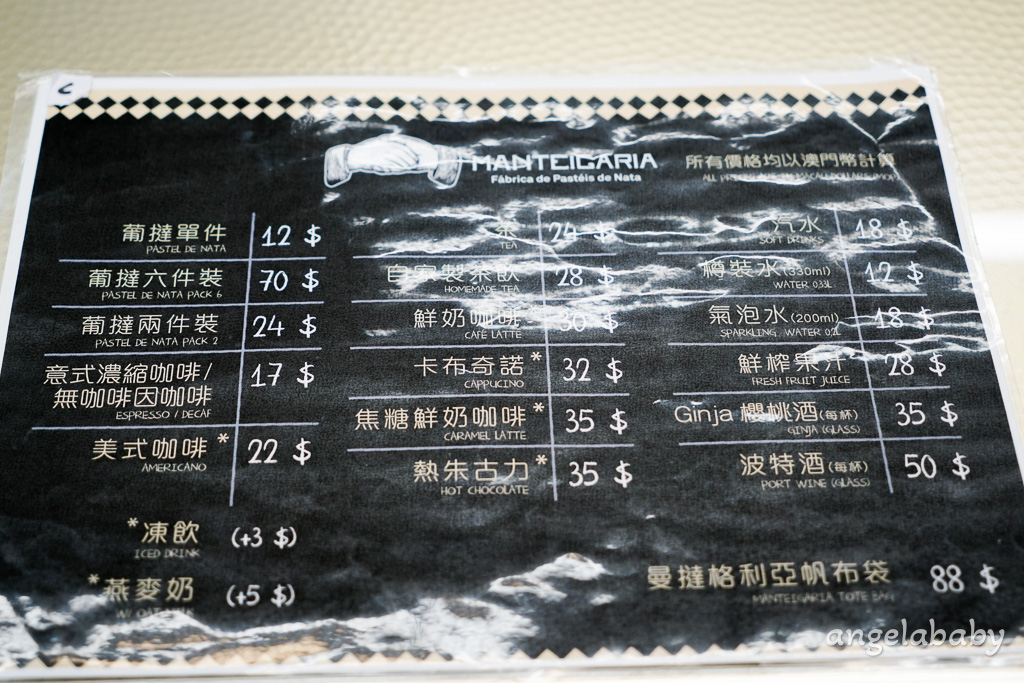 MANTEIGARIA
Fábrica de Pastéis de Nata
所有價格均以澳門幣計算
ALL PRICES ARE IN MACAU DOLLARS (MOP)
葡撻單件 12 $
PASTEL DE NATA
葡撻六件裝 70 $
PASTEL DE NATA PACK 6
葡撻兩件裝 24 $
PASTEL DE NATA PACK 2
意式濃縮咖啡/ 17 $
無咖啡因咖啡
ESPRESSO / DECAF
美式咖啡* 22 $
AMERICANO
*凍飲 (+3 $)
ICED DRINK
*燕麥奶 (+5 $)
W/ OAT MILK
茶 24 $
TEA
自家製茶飲 28 $
HOMEMADE TEA
鮮奶咖啡 30 $
CAFÉ LATTE
卡布奇諾* 32 $
CAPPUCINO
焦糖鮮奶咖啡* 35 $
CARAMEL LATTE
熱朱古力* 35 $
HOT CHOCOLATE
汽水 18 $
SOFT DRINKS
樽裝水(330ml) 12 $
WATER 0.33L
氣泡水(200ml) 18 $
SPARKLING WATER 0.2L
鮮榨果汁 28 $
FRESH FRUIT JUICE
Ginja 櫻桃酒(每杯) 35 $
GINJA (GLASS)
波特酒(每杯) 50 $
PORT WINE (GLASS)
曼撻格利亞帆布袋 88 $
MANTEIGARIA TOTE BAG
angelababy